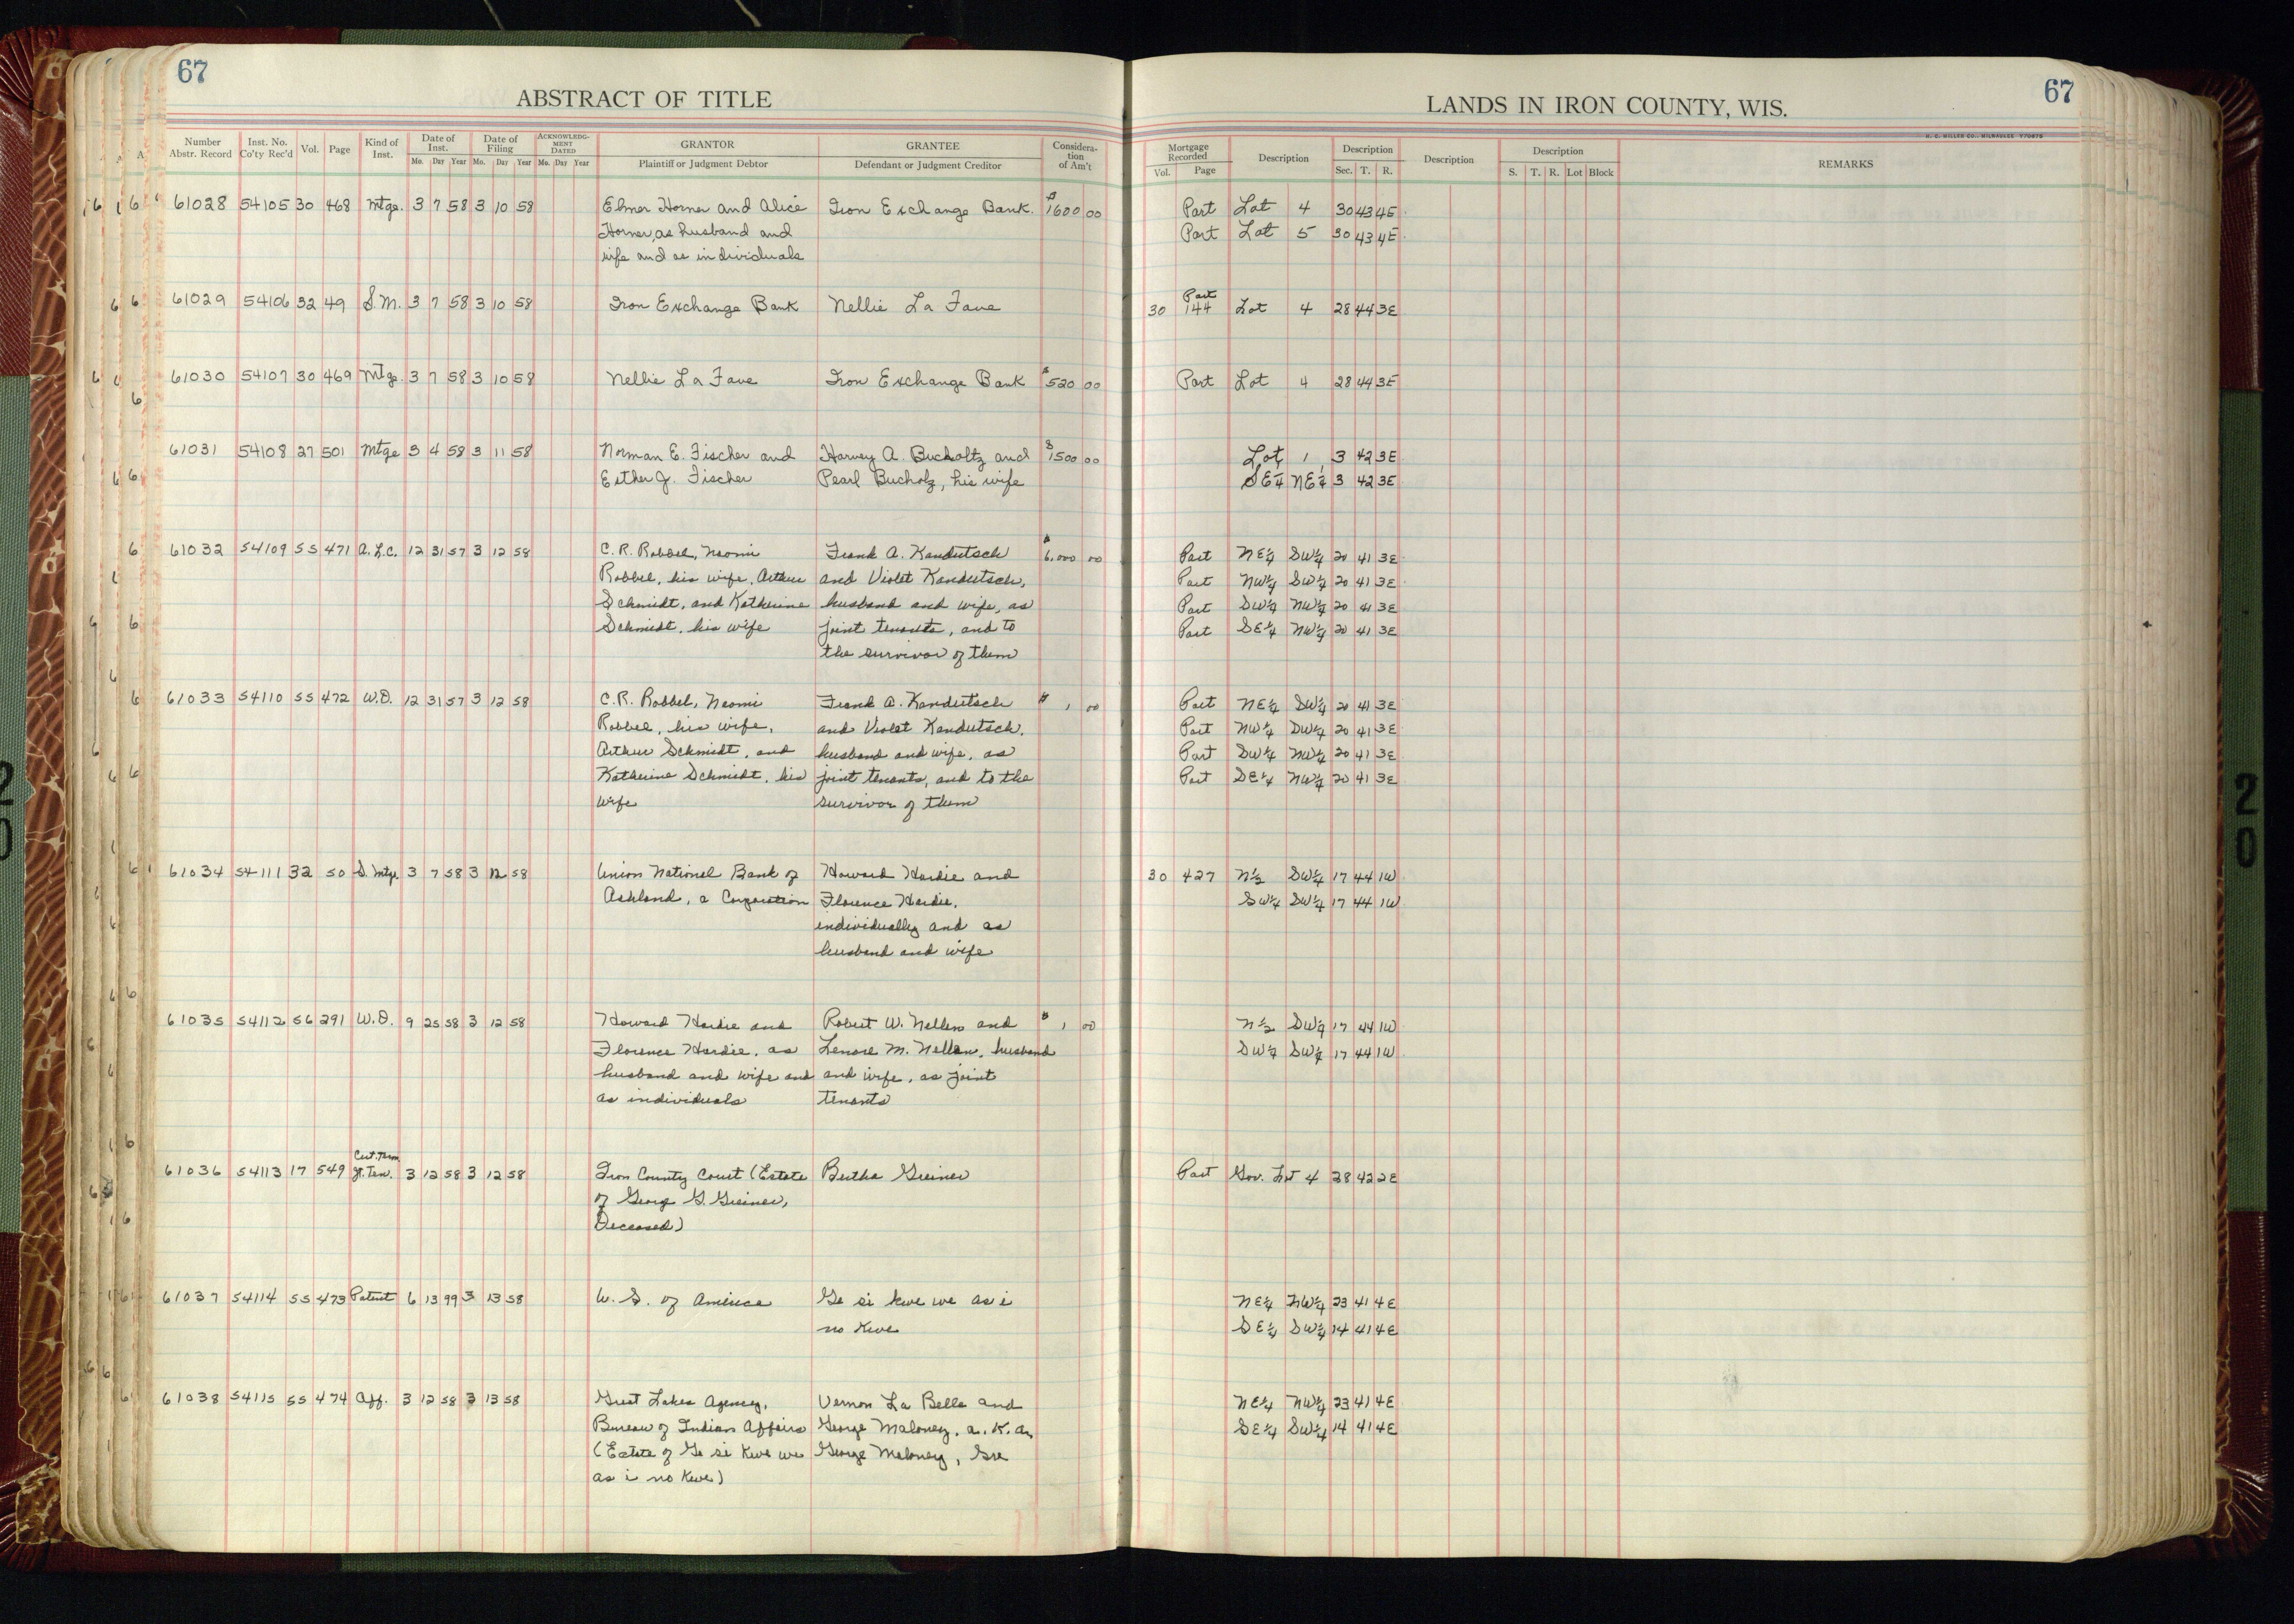 67
ABSTRACT OF TITLE
Number Abstr. Record Inst. No. Co'ty Rec'd Vol. Page Kind of Inst. Date of Inst. Mo. Day Year Date of Filing Mo. Day Year ACKNOWLEDGMENT DATED Mo. Day Year GRANTOR Plaintiff or Judgment Debtor GRANTEE Defendant or Judgment Creditor Consideration of Am't
61028 54105 30 468 Mtge. 3 7 58 3 10 58 Elmer Horner and Alice Iron Exchange Bank. $1600 00
Horner, as husband and
wife and as individuals
61029 54106 32 49 S.M. 3 7 58 3 10 58 Iron Exchange Bank Nellie La Fave
61030 54107 30 469 Mtge. 3 7 58 3 10 58 Nellie La Fave Iron Exchange Bank $520 00
61031 54108 27 501 Mtge 3 4 58 3 11 58 Norman E. Fischer and Harvey A. Bucholtz and $1500 00
Esther J. Fischer Pearl Bucholz, his wife
61032 54109 55 471 A.L.C. 12 31 57 3 12 58 C. R. Robbel, Naomi Frank A. Kandutsch $6,000 00
Robbel, his wife, Arthur and Violet Kandutsch,
Schmidt, and Katherine husband and wife, as
Schmidt, his wife joint tenants, and to
the survivor of them
61033 54110 55 472 W.D. 12 31 57 3 12 58 C.R. Robbel, Naomi Frank A. Kandutsch $ 1 00
Robbel, his wife, and Violet Kandutsch,
Arthur Schmidt, and husband and wife, as
Katherine Schmidt, his joint tenants, and to the
wife survivor of them
61034 54111 32 50 S. Mtge 3 7 58 3 12 58 Union National Bank of Howard Hardie and
Ashland, a Corporation Florence Hardie,
individually and as
husband and wife
61035 54112 56 291 W.D. 9 25 58 3 12 58 Howard Hardie and Robert W. Nellen and $ 1 00
Florence Hardie, as Lenore M. Nellen, husband
husband and wife and and wife, as joint
as individuals tenants
Cert. Term.
61036 54113 17 549 Jt. Ten. 3 12 58 3 12 58 Iron County Court (Estate Bertha Greiner
of George G. Greiner,
Deceased)
61037 54114 55 473 Patent 6 13 99 3 13 58 U. S. of America Ge si kwe we as i
no kwe
61038 54115 55 474 Aff. 3 12 58 3 13 58 Great Lakes Agency, Vernon La Belle and
Bureau of Indian Affairs George Maloney, a. K. a,
(Estate of Ge si kwe we George Maloney, Sre
as i no kwe)
67
LANDS IN IRON COUNTY, WIS.
H. C. MILLER CO., MILWAUKEE Y70875
Mortgage Recorded Vol. Page Description Description Sec. T. R. Description Description S. T. R. Lot Block REMARKS
Part Lot 4 30 43 4E
Part Lot 5 30 43 4E
Part
30 144 Lot 4 28 44 3E
Part Lot 4 28 44 3E
Lot 1 3 42 3E
SE¼ NE¼ 3 42 3E
Part NE¼ SW¼ 20 41 3E
Part NW¼ SW¼ 20 41 3E
Part SW¼ NW¼ 20 41 3E
Part SE¼ NW¼ 20 41 3E
Part NE¼ SW¼ 20 41 3E
Part NW¼ SW¼ 20 41 3E
Part SW¼ NW¼ 20 41 3E
Part SE¼ NW¼ 20 41 3E
30 427 N½ SW¼ 17 44 1W
SW¼ SW¼ 17 44 1W
N½ SW¼ 17 44 1W
SW¼ SW¼ 17 44 1W
Part Gov. Lot 4 28 42 2E
NE¼ NW¼ 23 41 4E
SE¼ SW¼ 14 41 4E
NE¼ NW¼ 23 41 4E
SE¼ SW¼ 14 41 4E
20